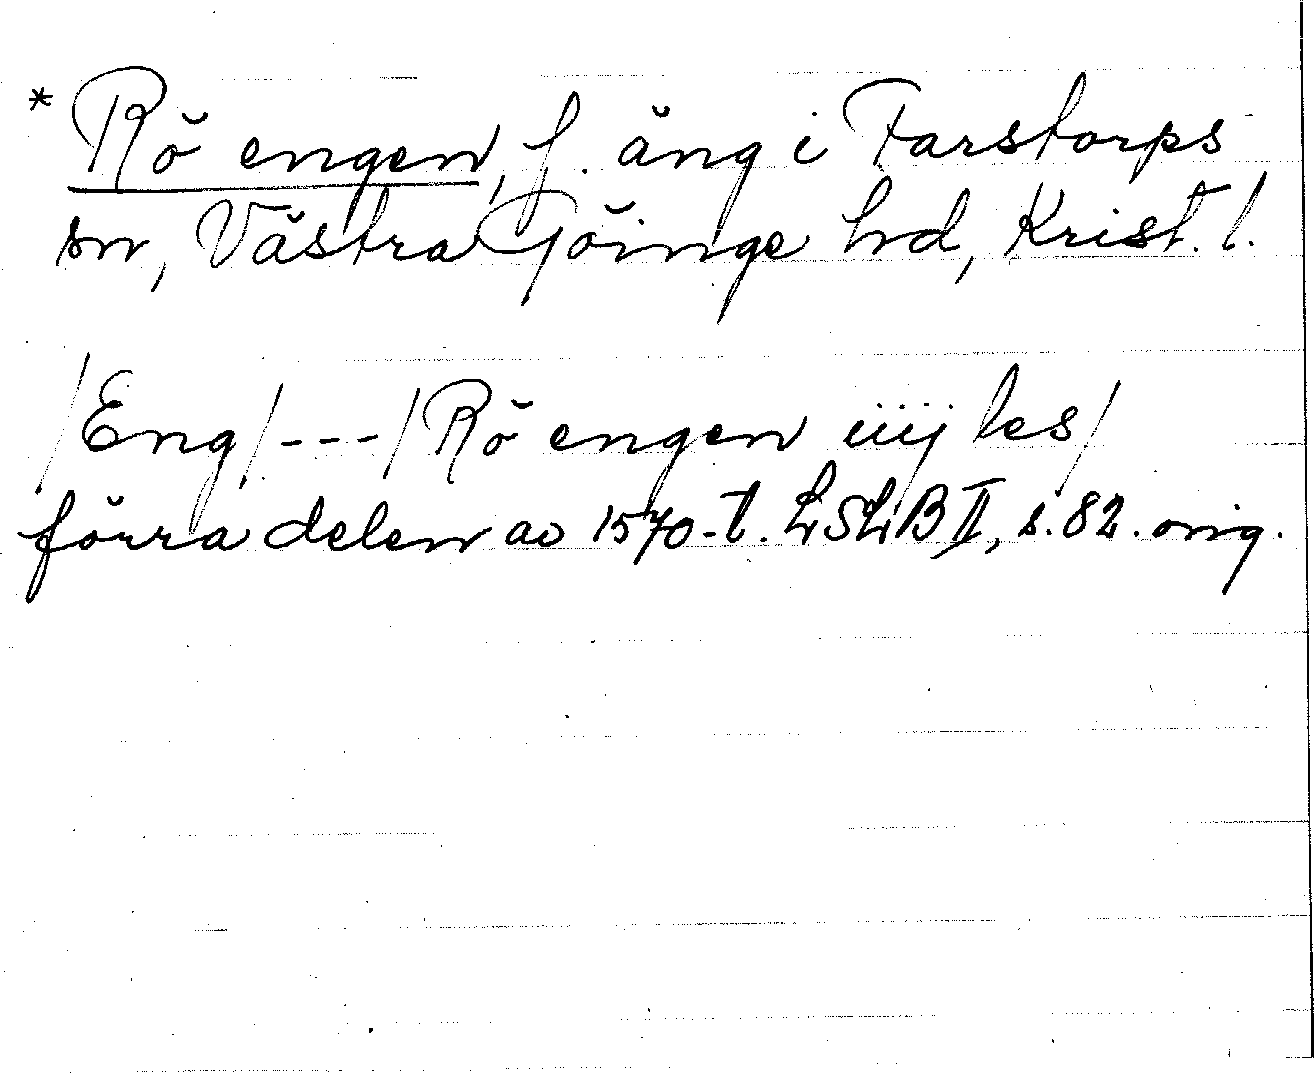 * Rö engen, f. äng i Farstorps
sn, Västra Göinge hd, Krist. l.
/Eng/---/Rö engen iiij les/
förra delen av 1570-t. LSLB II, s. 82. orig.